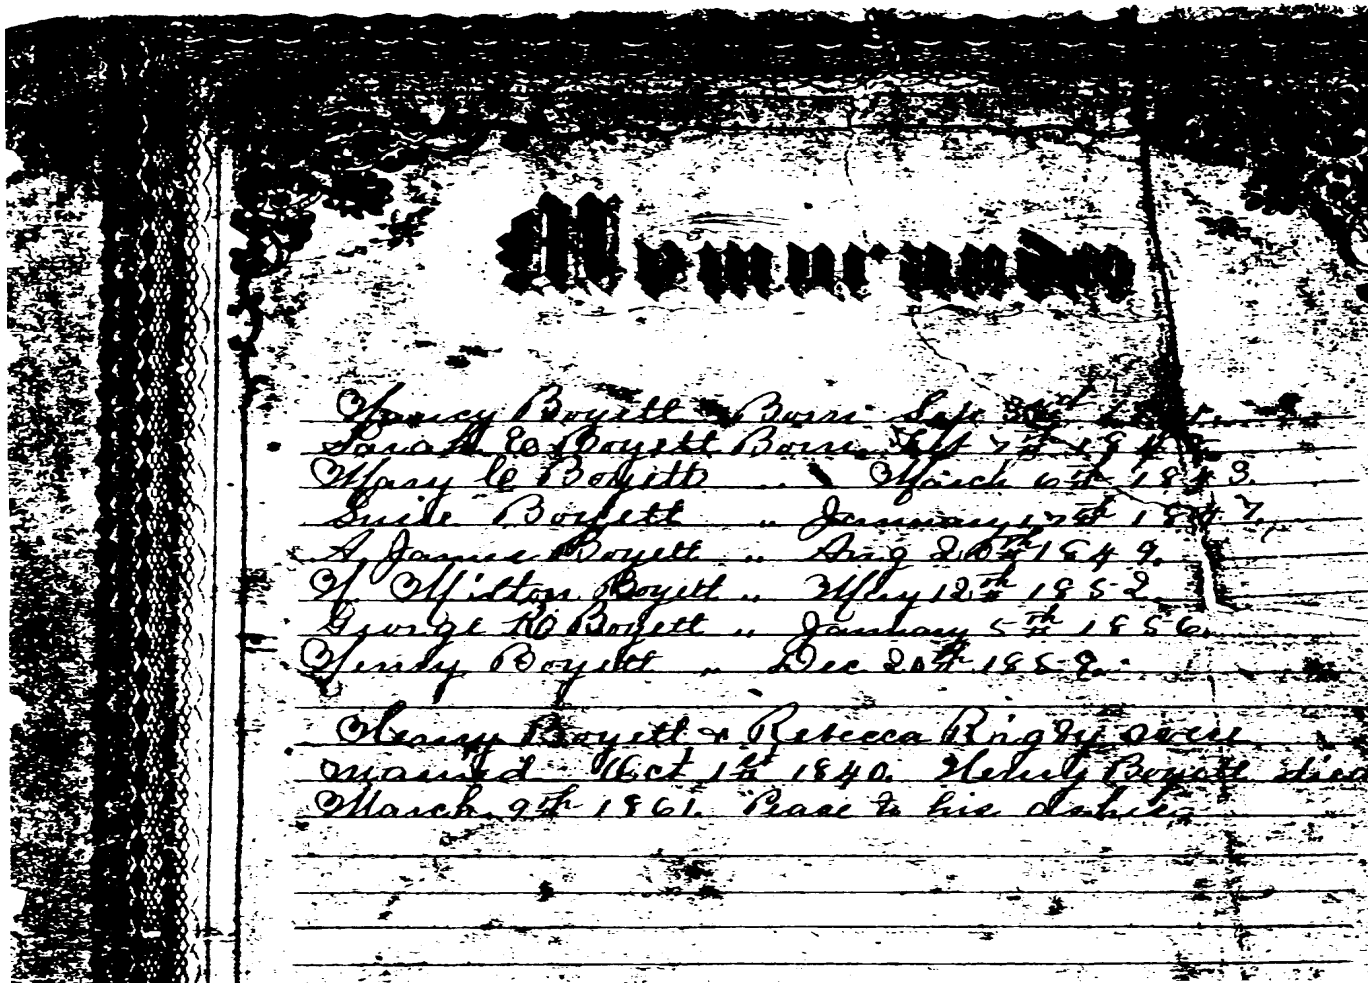 Memoranda
Nancy Boyett Born Sep
Sarah E Boyett Born 7th 184
Mary C Boyett " March 6th 1843.
Boyett " January 1847,
A James Boyett " Aug 20th 1849.
W. Milton Boyett " May 12th 1852
George R Boyett " January 5th 1856.
Henry Boyett " Dec 20th 1858.
Henry Boyett & Rebecca Rigby were
married Oct 1st 1840. Henry Boyett died
March 9th 1861. Pease to his ashes.